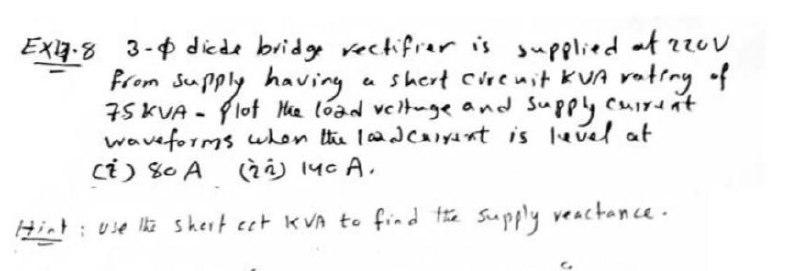 EX17.8 3-ϕ diode bridge rectifier is supplied at 220V
from supply having a short circuit KVA rating of
75 KVA - Plot the load voltage and supply current
waveforms when the load current is level at
(i) 80 A (ii) 140 A.
Hint : use the short cct KVA to find the supply reactance.